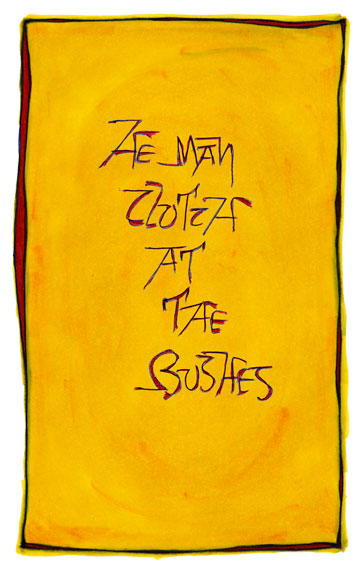 HE MAN
CLUTCH
AT
THE
BUSHES